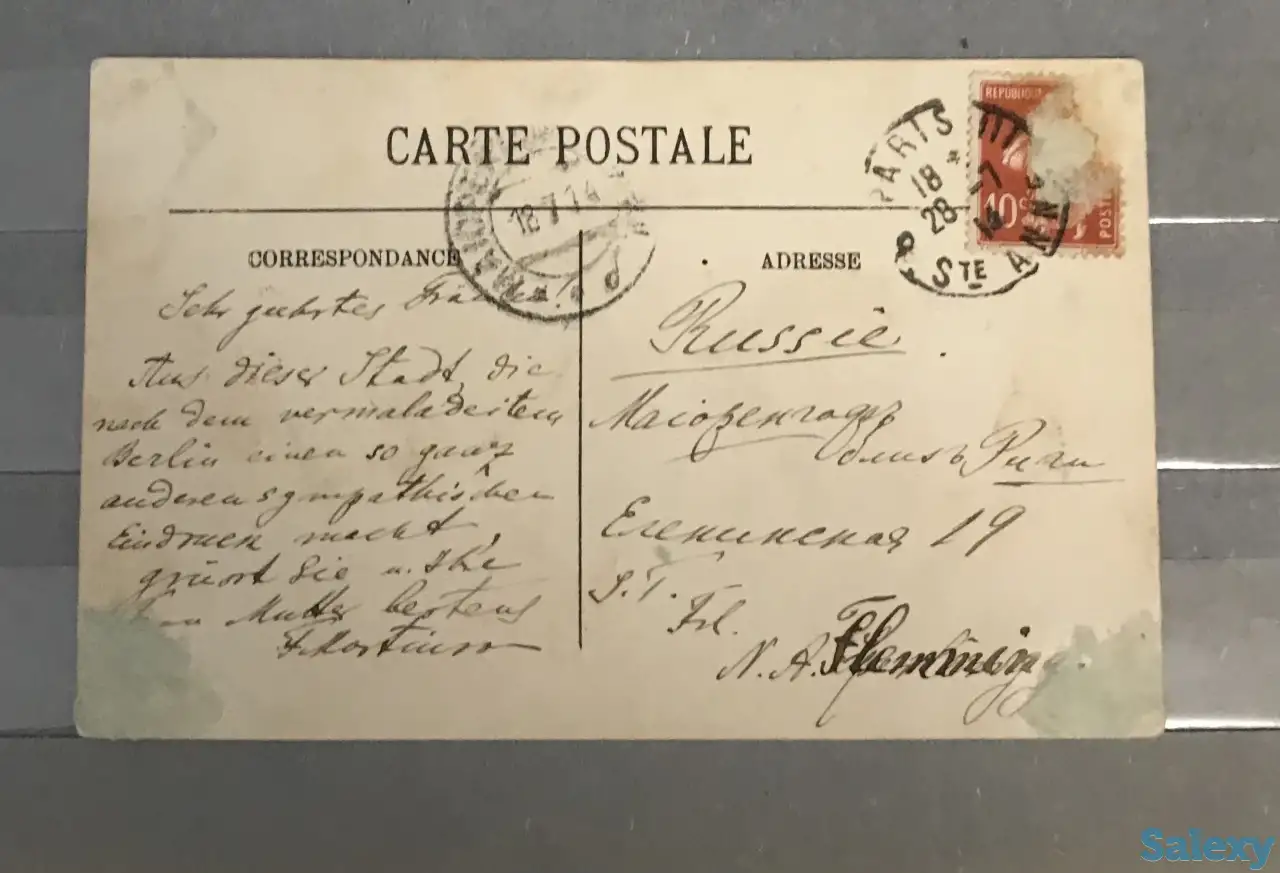 CARTE POSTALE
RÉPUBLIQUE
10c
POSTES
PARIS III
18 * 28 -7 14
STE ANNE
MAIORE
18 7 14
CORRESPONDANCE
ADRESSE
Sehr geehrtes Fräulein!
Aus dieser Stadt, die
nach dem vermaladeiten
Berlin einen so ganz
anderen sympathischen
Eindruck macht,
grüsst Sie u. Ihre
Frau Mutter bestens
Russie.
Маіоренгофъ
близъ Риги
Еленинская 19
S. T.
Frl.
N. A. Flemming.
Salexy